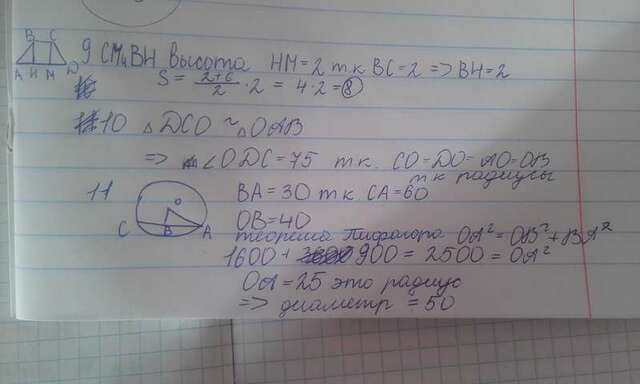 B C
A H M D
9 CM и BH высота HM=2 тк BC=2 => BH=2
S = 2+6/2 · 2 = 4·2 = 8
10 △DCO ~ △OAB
=> ∠ODC=75 тк. CO=DO=AO=OB
тк радиусы
11 BA=30 тк CA=60
O
C B A
OB=40
теорема Пифагора OA²=OB²+BA²
1600+900=2500=OA²
OA=25 это радиус
=> диаметр =50